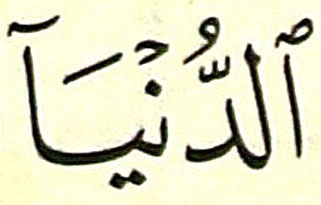 ٱلدُّنۡيَآ